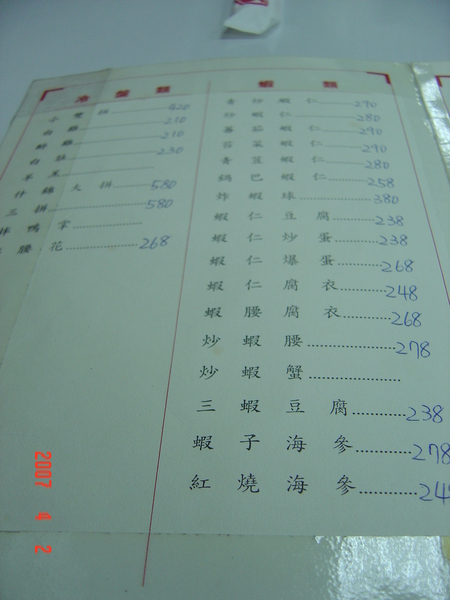 冷盤類
小雙拼 420
白雞 210
醉雞 210
白肚 230
羊羔
什錦大拼 580
三拼 580
拌鴨掌
腰花 268
蝦類
青炒蝦仁 290
炒蝦仁 280
蕃茄蝦仁 290
蒜菜蝦仁 290
青豆蝦仁 280
鍋巴蝦仁 258
炸蝦球 380
蝦仁豆腐 238
蝦仁炒蛋 238
蝦仁爆蛋 268
蝦仁腐衣 248
蝦腰腐衣 268
炒蝦腰 278
炒蝦蟹
三蝦豆腐 238
蝦子海參 278
紅燒海參 24
2007 4 2